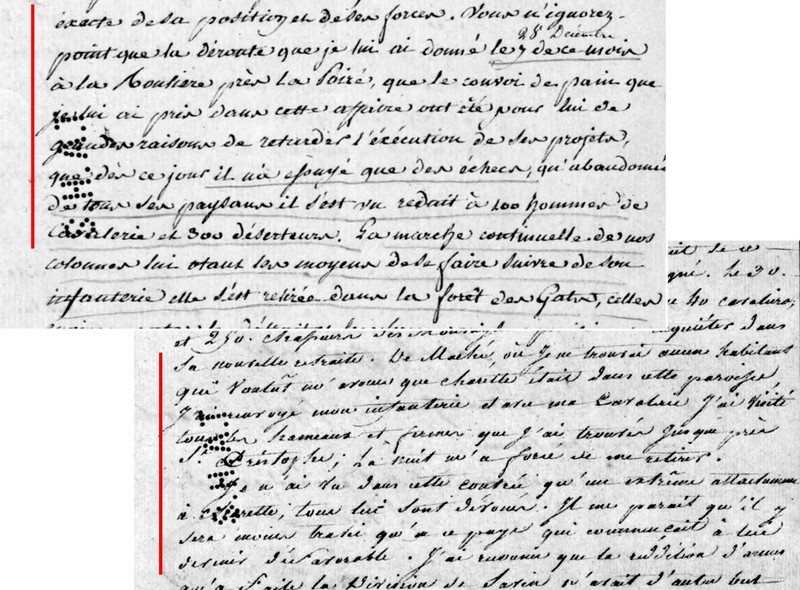 exacte de sa position et de ses forces. Vous n'ignorez
28 Décembre
point que la déroute que je lui ai donné le 7 de ce mois
à la Roulière près la Poiré, que le convoi de pain que
je lui ai pris dans cette affaire ont été pour lui de
grandes raisons de retarder l'éxécution de ses projets,
que dès ce jour il n'a essuyé que des échecs, qu'abandonné
de tous ses paysans il s'est vu reduit à 100 hommes de
Cavalerie et 300 déserteurs. La marche continuelle de nos
colonnes lui otant les moyens de se faire suivre de son
infanterie elle s'est retirée dans la forêt des Gats, celles
qué. Le 30.
40 cavaliers,
et 250. chasseurs inquiéter dans
sa nouvelle retraite. De Maché, où je ne trouvai aucun habitant
qui voulût m'avouer que charette était dans cette paroisse
J'ai renvoyé mon infanterie et avec ma Cavalerie J'ai visité
tous les hameaux et fermes que j'ai trouvés jusque près
St. Christophe; la nuit m'a forcé de me retirer.
Je n'ai vu dans cette contrée qu'un extrême attachement
à charette, tous lui sont dévoués. Il me parait qu'il y
sera moins trahi qu'à ce pays qui commençait à lui
devenir défavorable. J'ai reconnu que la reddition d'armes
qu'a faite la division de Savin n'avait d'autre but